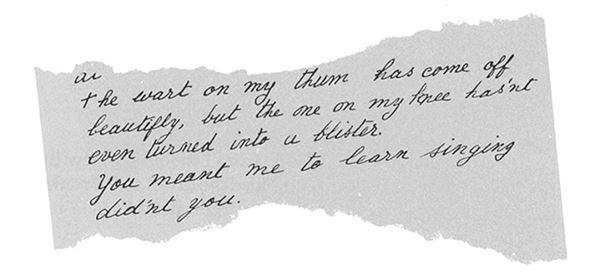 the wart on my thum has come off
beautiflly, but the one on my knee has'nt
even turned into a blister.
You meant me to learn singing
did'nt you.